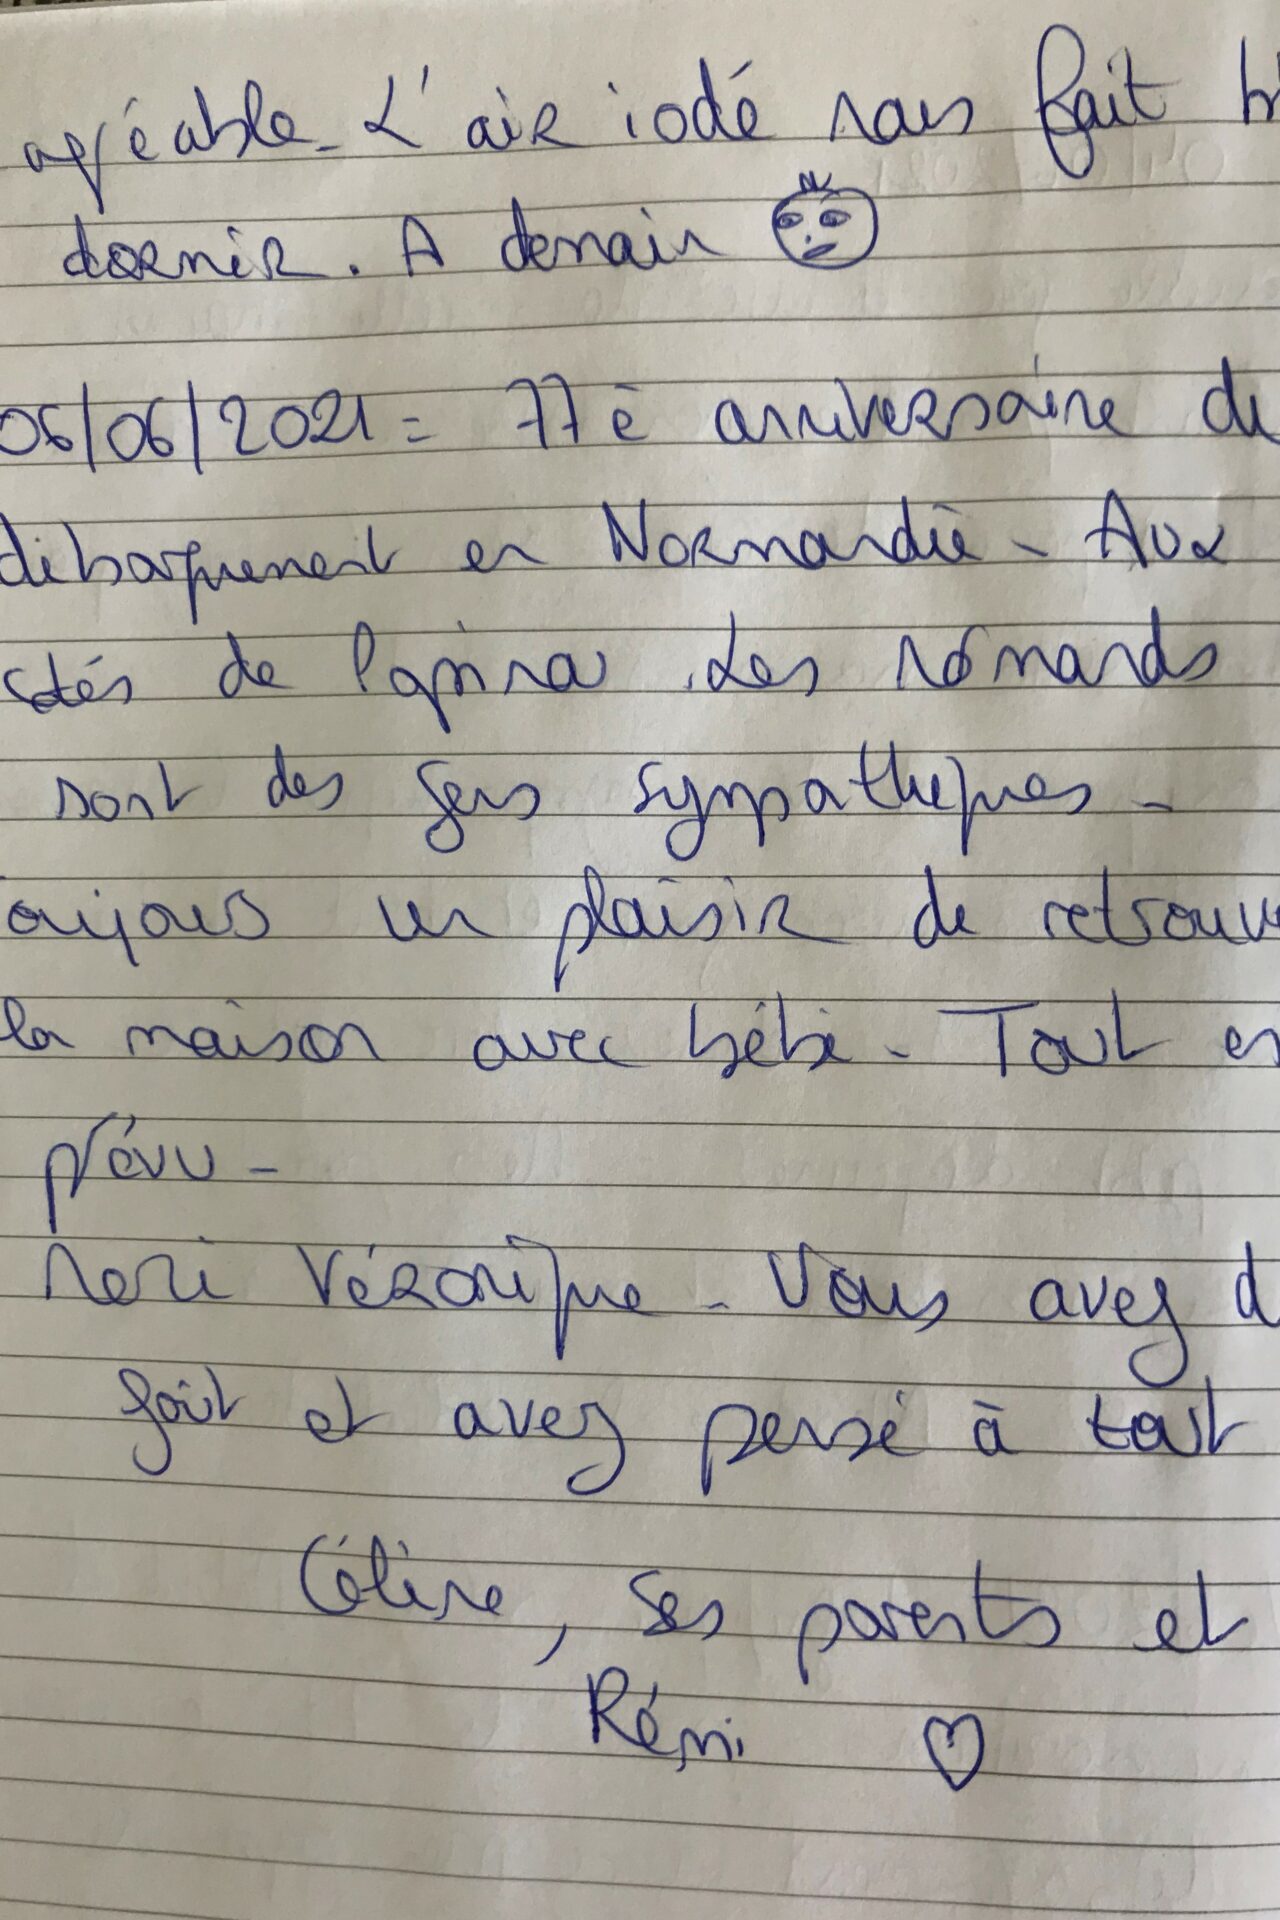 agréable. L'air iodé nous fait b
dormir. A demain
06/06/2021 = 77è anniversaire du
débarquement en Normandie - Aux
côtés de . Les normands
sont des gens sympathiques -
Toujours un plaisir de retrouve
la maison avec bébé - Tout es
prévu -
Merci Véronique - Vous avez d
goût et avez pensé à tout
Céline, ses parents et
Rémi